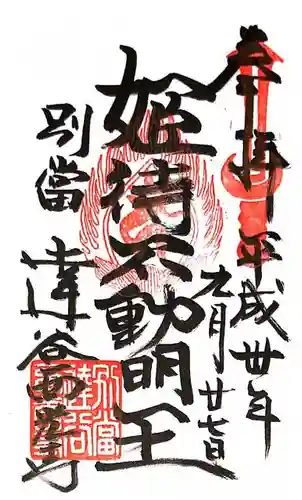 奉拝 平成卅年
九月廿七日
姫待不動明王
別當
達谷西光寺